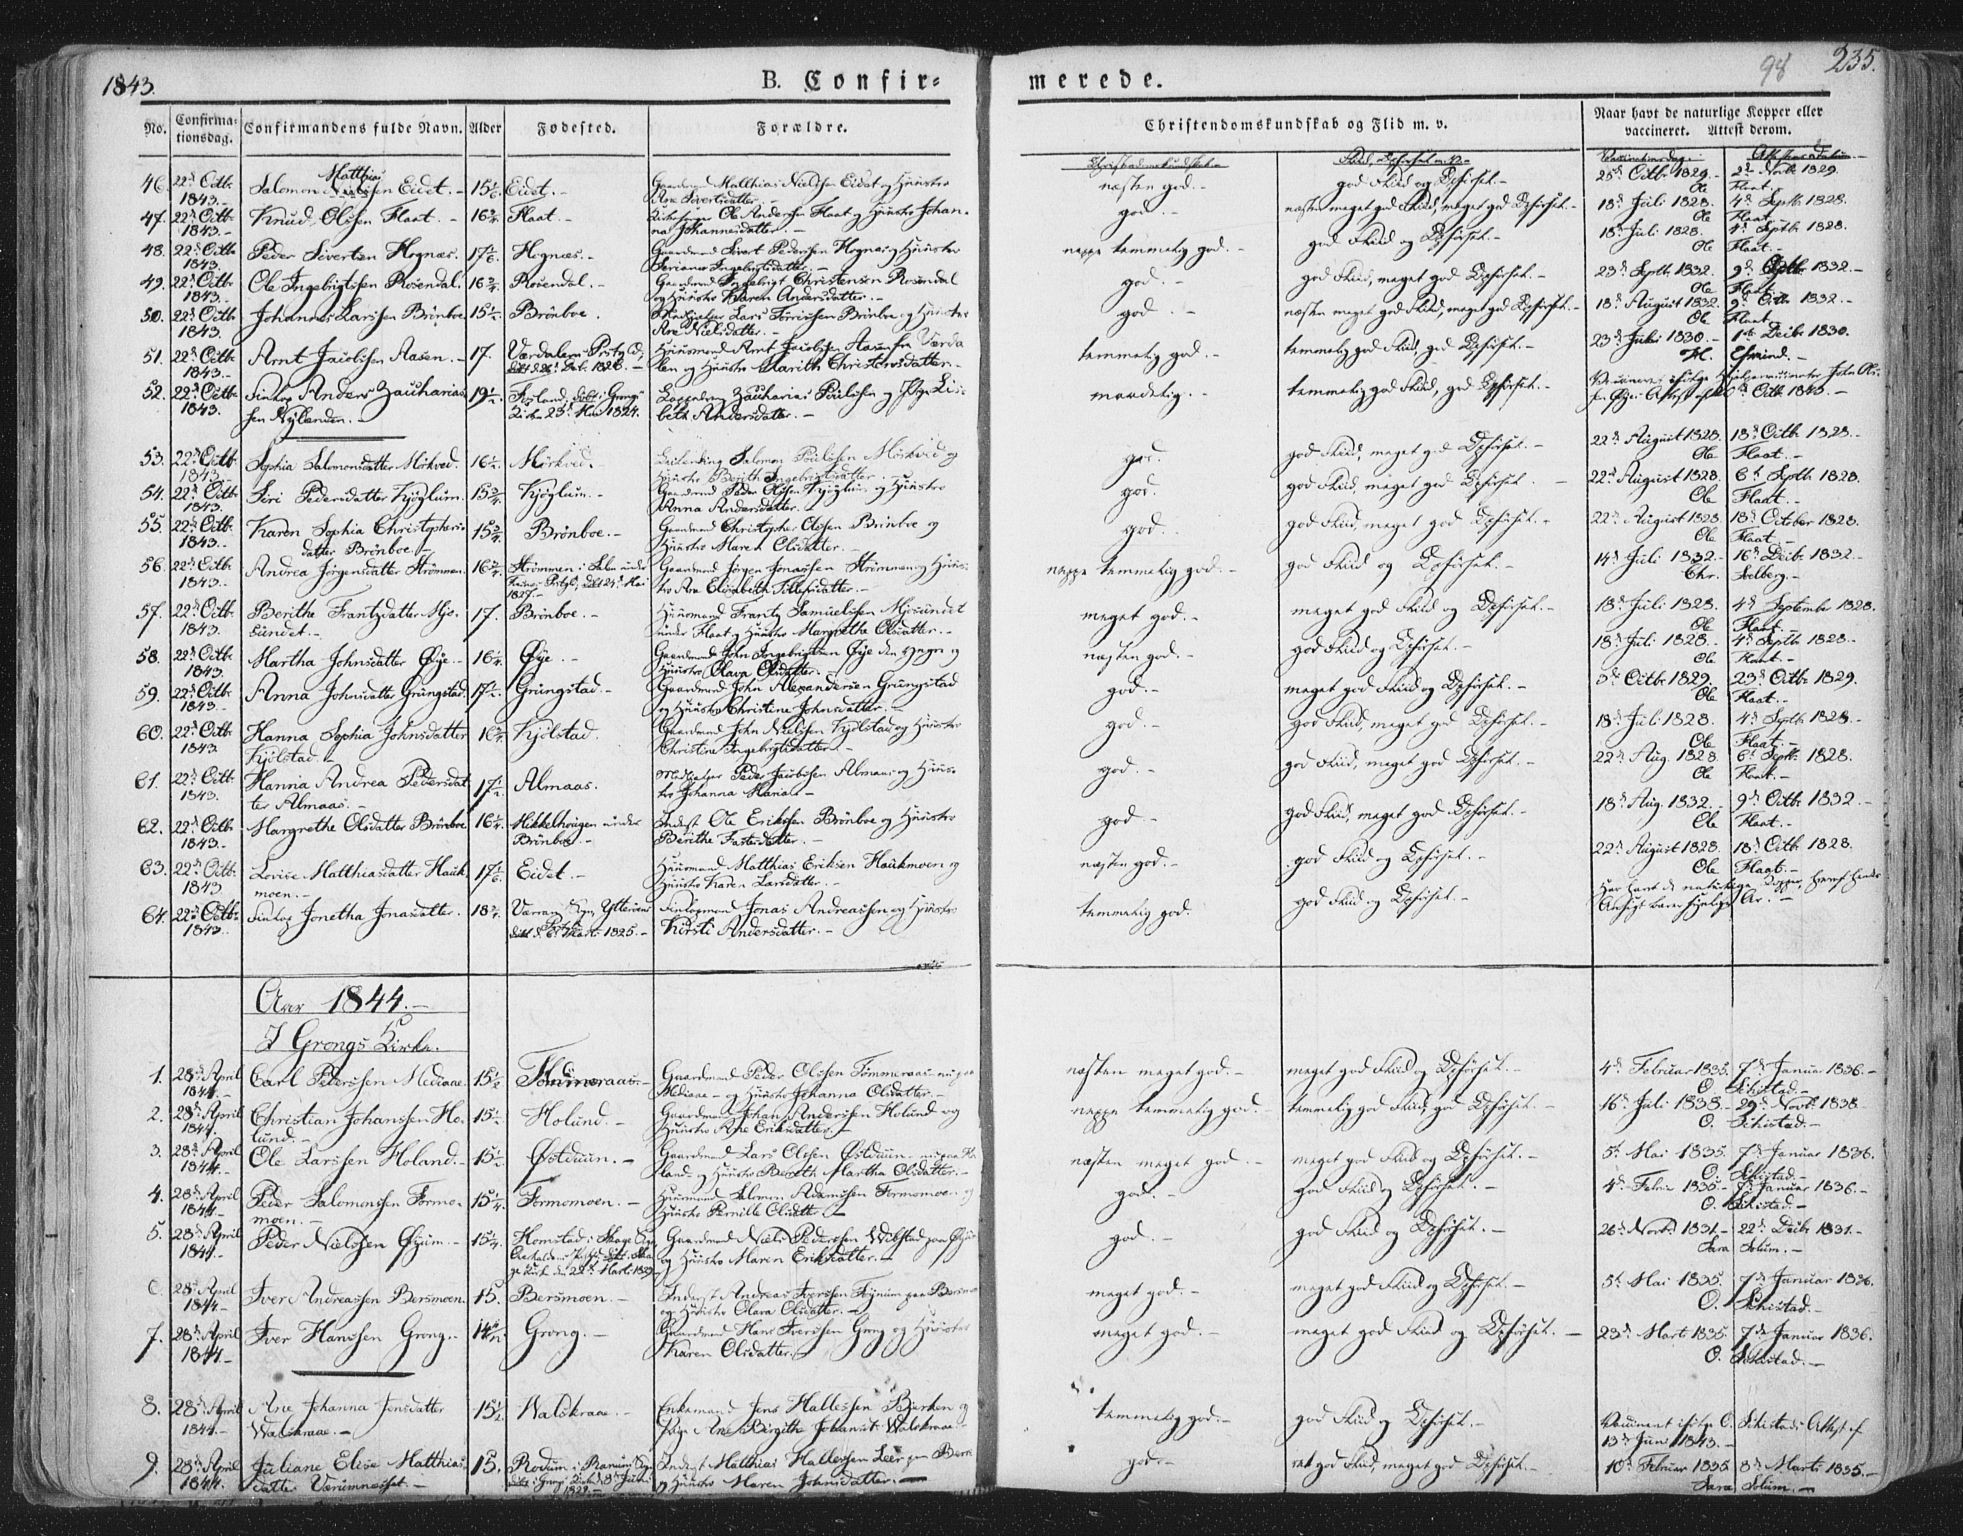 1843.
B. Confir-
merede.
98
235.
No.
Confirma-
tionsdag.
Confirmandens fulde Navn.
Alder
Fødested.
Forældre.
Christendomskundskab og Flid m. v.
Naar havt de naturlige Kopper eller
vaccineret. Attest derom.
46. 22d Octb. 1843.- Salomon Matthias Eidet.- 15 Eidet.- Gaardmand Matthias Nielssen Eidet og Hustro
Ane Sivertsdatter.- næsten god.- god Fliid og Opførsel.- 25d Octb 1829.- 2d Novb 1829. Ole Flaat.-
47. 22d Octb 1843.- Knud Olssen Flaat.- 16 3/4 Flaat.- Ole Anderssen Flaat og Hustro Johan-
na Johannesdatter.- god.- næsten meget god Fliid, meget god Opførsel.- 18d Juli 1828. 4d Septb 1828. Ole Flaat.
48. 22d Octb 1843. Peder Sivertsen Hognæs. 17 1/6 Hognæs.- Gaardmand Sivert Pederssen Hognæs og Hustro
Ingebrigtsdatter.- neppe temmelig god.- god Fliid og Opførsel.- 18d Juli 1828. 4d Septb 1828. Ole Flaat.-
49. 22d Octb 1843.- Ole Ingebrigtssen Rosendal. 16 3/4 Rosendal.- Gaardmand Ingebrigt Christensen Rosendal
og Hustro Karen Andersdatter.- god.- god Fliid, meget god Opførsel.- 23d Septb 1832. 9d Octb 1832.- Ole Flaat.-
50. 22d Octb 1843. Johannes Larssen Brönboe 15 1/2 Brönboe. Lars Brönboe og Hustro
Ane Nielsdatter.- god.- næsten meget god Fliid, meget god Opførsel.- 18d August 1832. 9d Octb 1832.- Ole Flaat.
51. 22d Octb 1843.- Arnt Jacobssen Aasen.- 17. Værdalens Prstgld,
1826.- Huusmand Arnt Jacobssen Aasen fra Værda-
len og Hustro Marith Christensdatter.- temmelig god.- temmelig god Fliid, god Opførsel.- 23d 1830.- 1st Decbr 1830.
52. 22d Octb 1843. Finlap Anders Zacharias-
sen Nylanden.- 19 1/2 Grongs
Kirke 23d Mai 1824. Zacharias Poulssen og Pige Lis-
beth Andersdatter.- maadelig.- temmelig god Fliid, god Opførsel.- Octb 1843.-
53. 22d Octb 1843 Sophia Salomonsdatter Mörkved. 16 1/2 Mörkved. Salomon Poulssen Mörkved og
Hustro Berith Ingebrigtsdatter.- god. god Fliid, meget god Opførsel.- 22d August 1828. 18d Octb 1828.- Ole Flaat.-
54. 22d Octb 1843. Siri Pedersdatter Kjöglum. 15 3/4 Kjöglum.- Gaardmand Peder Olssen Kjöglum og Hustro
Anna Andersdatter. god. god Fliid, meget god Opførsel.- 22d August 1828 6t Septb 1828. Ole Flaat.-
55. 22d Octb 1843.- Karen Sophia Christophers-
datter Brönboe.- 15 3/4 Brönboe.- Gaardmand Christopher Olssen Brönboe og
Hustro Maren Olsdatter.- god.- god Fliid, meget god Opførsel.- 22d August 1828 18d October 1828. Ole Flaat.-
56. 22d Octb 1843.- Andrea Jörgensdatter Strömmen. 16 Strömmen i under
24d Mai
1827.- Gaardmand Jörgen Jonassen Strömmen og Hust-
ro Ane Elisabeth Tillufsdatter.- neppe temmelig god.- god Fliid og Opførsel.- 14d Juli 1832.- 16d Decbr 1832.- Chr. Solberg.-
57. 22d Octb 1843. Berithe Frantzdatter Mjö-
sundet.- 17. Brönboe.- Huusmand Frantz Samuelssen Mjösundet
under Flaat og Hustro Margrethe Olsdatter.- meget god.- meget god Fliid og Opførsel.- 18d Juli 1828. 4d September 1828. Ole Flaat.-
58. 22d Octb 1843. Martha Johnsdatter Öÿe.- 16 1/4 Öÿe.- Gaardmand John Ingebrigtsen Öÿe den yngre og
Hustro Olava Olsdatter.- næsten god.- god Fliid og Opførsel.- 18d Juli 1828.- 4d Septb 1828.- Ole Flaat.-
59. 22d Octb 1843.- Anna Johnsdatter Grungstad. 17 1/2 Grungstad.- Gaardmand John Alexandersen Grungstad
og Hustro Christine Johnsdatter.- god.- meget god Fliid og Opførsel.- 5d Octb 1829. 23d Octb 1829. Ole Flaat.-
60. 22d Octb 1843. Hanna Sophia Johnsdatter
Kjölstad.- 16 3/4 Kjölstad. Gaardmand John Nielssen Kjölstad og Hustro
Christine Ingebrigtsdatter.- god.- god Fliid, meget god Opførsel.- 18d Juli 1828. 4d Septb 1828.- Ole Flaat.-
61. 22d Octb 1843. Hanna Andrea Pedersdat-
ter Almaas.- 17 1/2 Almaas. Peder Jacobssen Almaas og Hust-
ro Johanna Maria.- god.- god Fliid, meget god Opførsel.- 22d Aug. 1828 6t Septb 1828. Ole Flaat.-
62. 22d Octb 1843.- Margrethe Olsdatter Brönboe 16 1/4 Mikkelhougen under
Brönboe.- Inderst Ole Erikssen Brönboe og Hustro
Berithe Fastesdatter.- god.- god Fliid, meget god Opførsel.- 18d Aug. 1832.- 9d Octb 1832.- Ole Flaat.-
63. 22d Octb 1843 Lovise Matthiasdatter Hauk-
moen.- 17 1/6 Eidet.- Huusmand Matthias Eriksen Haukmoen og
Hustro Karen Larsdatter.- næsten god.- god Fliid og Opførsel.- 22d August 1828 18d Octb 1828. Ole Flaat.-
64. 22d Octb 1843. Finlap Jonetha Jonasdatter. 18 3/4 Værran Sogn, Ytteröens
Marts 1825.- Finlapmand Jonas Andreassen og Hustro
Kirsti Andersdatter.- temmelig god. god Fliid og Opførsel.- Har havt de naturlige Kopper,
Ansigt bærer synlige Ar.-
Aar 1844.-
I Grongs Kirke.
1. 28d April 1844.- Carl Pederssen Mediaae. 15 1/2 Tömmeraas.- Gaardmand Peder Olssen Tömmeraas nu paa
Mediaae- og Hustro Johanna Olsdatter.- næsten meget god.- meget god Fliid og Opførsel.- 4d Februar 1835. 7d Januar 1836.- O. Schistad.-
2. 28d April 1844. Christian Johanssen Ho-
lund.- 15 1/2 Holund.- Gaardmand Johan Anderssen Holund og
Hustro Ane Eriksdatter.- neppe temmelig god.- temmelig god Fliid, god Opførsel.- 16d Juli 1838.- 29d Novb. 1838 O. Schistad.-
3. 28d April 1844.- Ole Larssen Holand.- 15 1/2 Östduun.- Gaardmand Lars Olssen Östduun nu paa Ho-
land og Hustro Bereth Martha Olsdatter.- næsten meget god.- meget god Fliid og Opførsel.- 5d Mai 1835. 7d Januar 1836. O. Schistad.-
4. 28d April 1844.- Peder Salomonssen Formo-
moen.- 15 1/4 Formomoen.- Huusmand Salomon Adamssen Formomoen og
Hustro Pernille Olsdatter.- god.- god Fliid og Opførsel.- 4d Febr. 1835.- 7d Januar 1836.- O. Schistad.-
5. 28d April 1844.- Peder Nielssen Öÿum.- 15 1/4 Homstad i Skage Sogn
Overhaldens Prstgld, Ska-
ge Kirke d. 22d Marts 1829. Gaardmand Niels Pederssen Vibstad paa Öÿum
og Hustro Maren Eriksdatter.- god.- god Fliid og Opførsel.- 26d Novb. 1831.- 22d Decbr 1831.- Sara Solum.-
6. 28d April 1844.- Iver Andreassen Bersmoen. 15. Bersmoen.- Inderst Andreas Iverssen paa Bersmoen
og Hustro Olava Olsdatter.- meget god.- meget god Fliid og Opførsel.- 5d Mai 1835. 7d Januar 1836. O. Schistad.-
7. 28d April 1844.- Iver Hanssen Grong.- 14 Grong.- Gaardmand Hans Iverssen Grong og Hustro
Karen Olsdatter.- meget god.- meget god Fliid og Opførsel.- 23d Mart 1835 7d Januar 1836. O. Schistad.-
8. 28d April 1844.- Ane Johanna Jensdatter
Walskraae.- 15 1/2 Walskraae.- Enkemand Jens Hallessen Bjerken og
Pige Ane Birgithe Johansd. Walskraae.- temmelig god.- god Fliid og Opførsel.- Vaccineret ifølge O. Schistads Attest af
13d Juni 1843.-
9. 28d April 1844. Juliane Elise Matthias-
datter Værumnæsset.- 15. Rodum i Ranum Sogn
1829.- Inderst Matthias Hallessen
og Hustro Maren Johnsdatter.- god.- ret god Fliid, meget god Opførsel.- 10d Februar 1835 8d Marts 1835.- Sara Solum.-